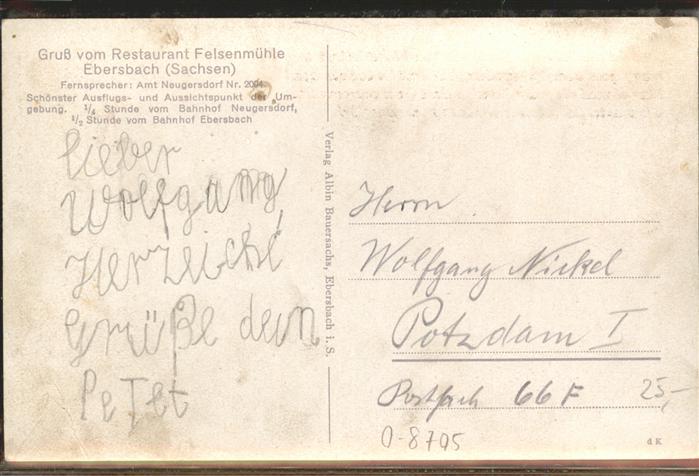 Gruß vom Restaurant Felsenmühle
Ebersbach (Sachsen)
Fernsprecher: Amt Neugersdorf Nr. 2094
Schönster Ausflugs- und Aussichtspunkt der Um-
gebung. ¼ Stunde vom Bahnhof Neugersdorf,
½ Stunde vom Bahnhof Ebersbach
lieber
Wolfgang,
Herzeiche
Grüße dein
Peter
Verlag Albin Bauersachs, Ebersbach i. S.
Herrn
Wolfgang Nickel
Potzdam I
Postfach 66 F
25,-
0-8795
d K